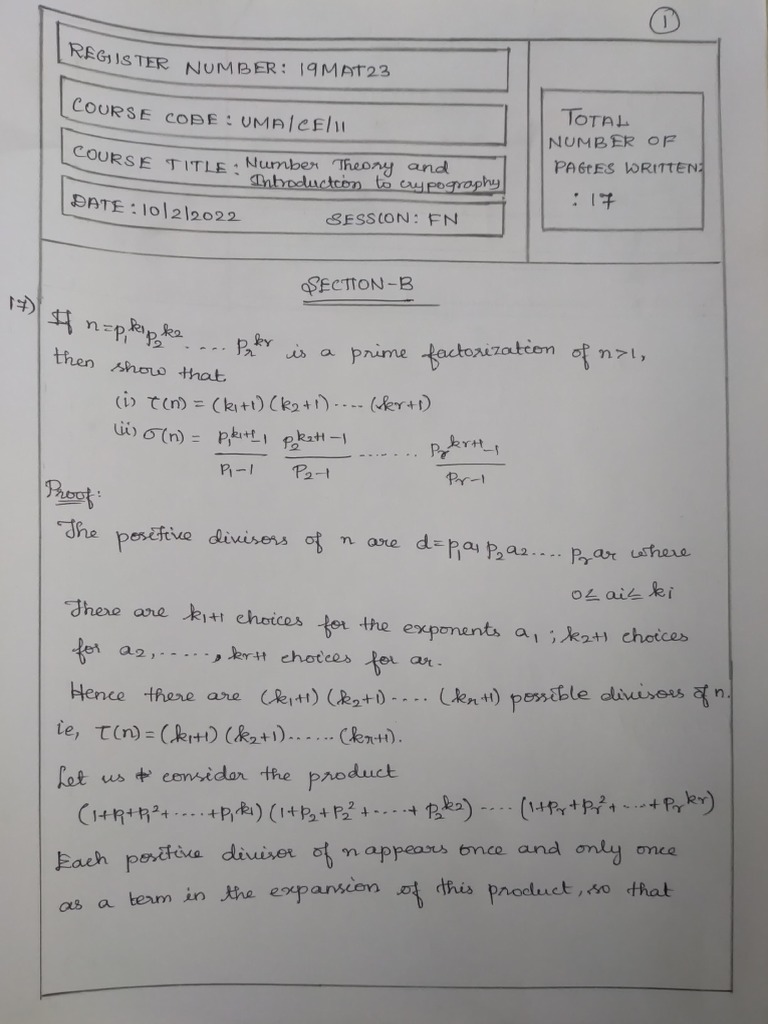 ①
REGISTER NUMBER: 19MAT23
COURSE CODE: UMA/CE/11
COURSE TITLE: Number Theory and
Introduction to crypography
DATE: 10/2/2022 SESSION: FN
TOTAL
NUMBER OF
PAGES WRITTEN:
: 17
SECTION-B
17) If n=p₁^k₁ p₂^k₂ .... pᵣ^kr is a prime factorization of n>1,
then show that
(i) τ(n) = (k₁+1) (k₂+1) .... (kr+1)
(ii) σ(n) = (p₁^(k₁+1) -1)/(p₁-1) (p₂^(k₂+1) -1)/(p₂-1) ....... (pᵣ^(kr+1) -1)/(pᵣ-1)
Proof:
The positive divisors of n are d=p₁a₁ p₂a₂.... pᵣar where
0≤ ai≤ ki
There are k₁+1 choices for the exponents a₁; k₂+1 choices
for a₂, ......, kr+1 choices for ar.
Hence there are (k₁+1) (k₂+1) .... (kr+1) possible divisors of n.
ie, τ(n) = (k₁+1) (k₂+1) ...... (kr+1).
Let us consider the product
(1+p₁+p₁²+ .....+p₁^k₁) (1+p₂+p₂²+ ....+ p₂^k₂) .... (1+pᵣ+pᵣ²+ ...+pᵣ^kr)
Each positive divisor of n appears once and only once
as a term in the expansion of this product, so that